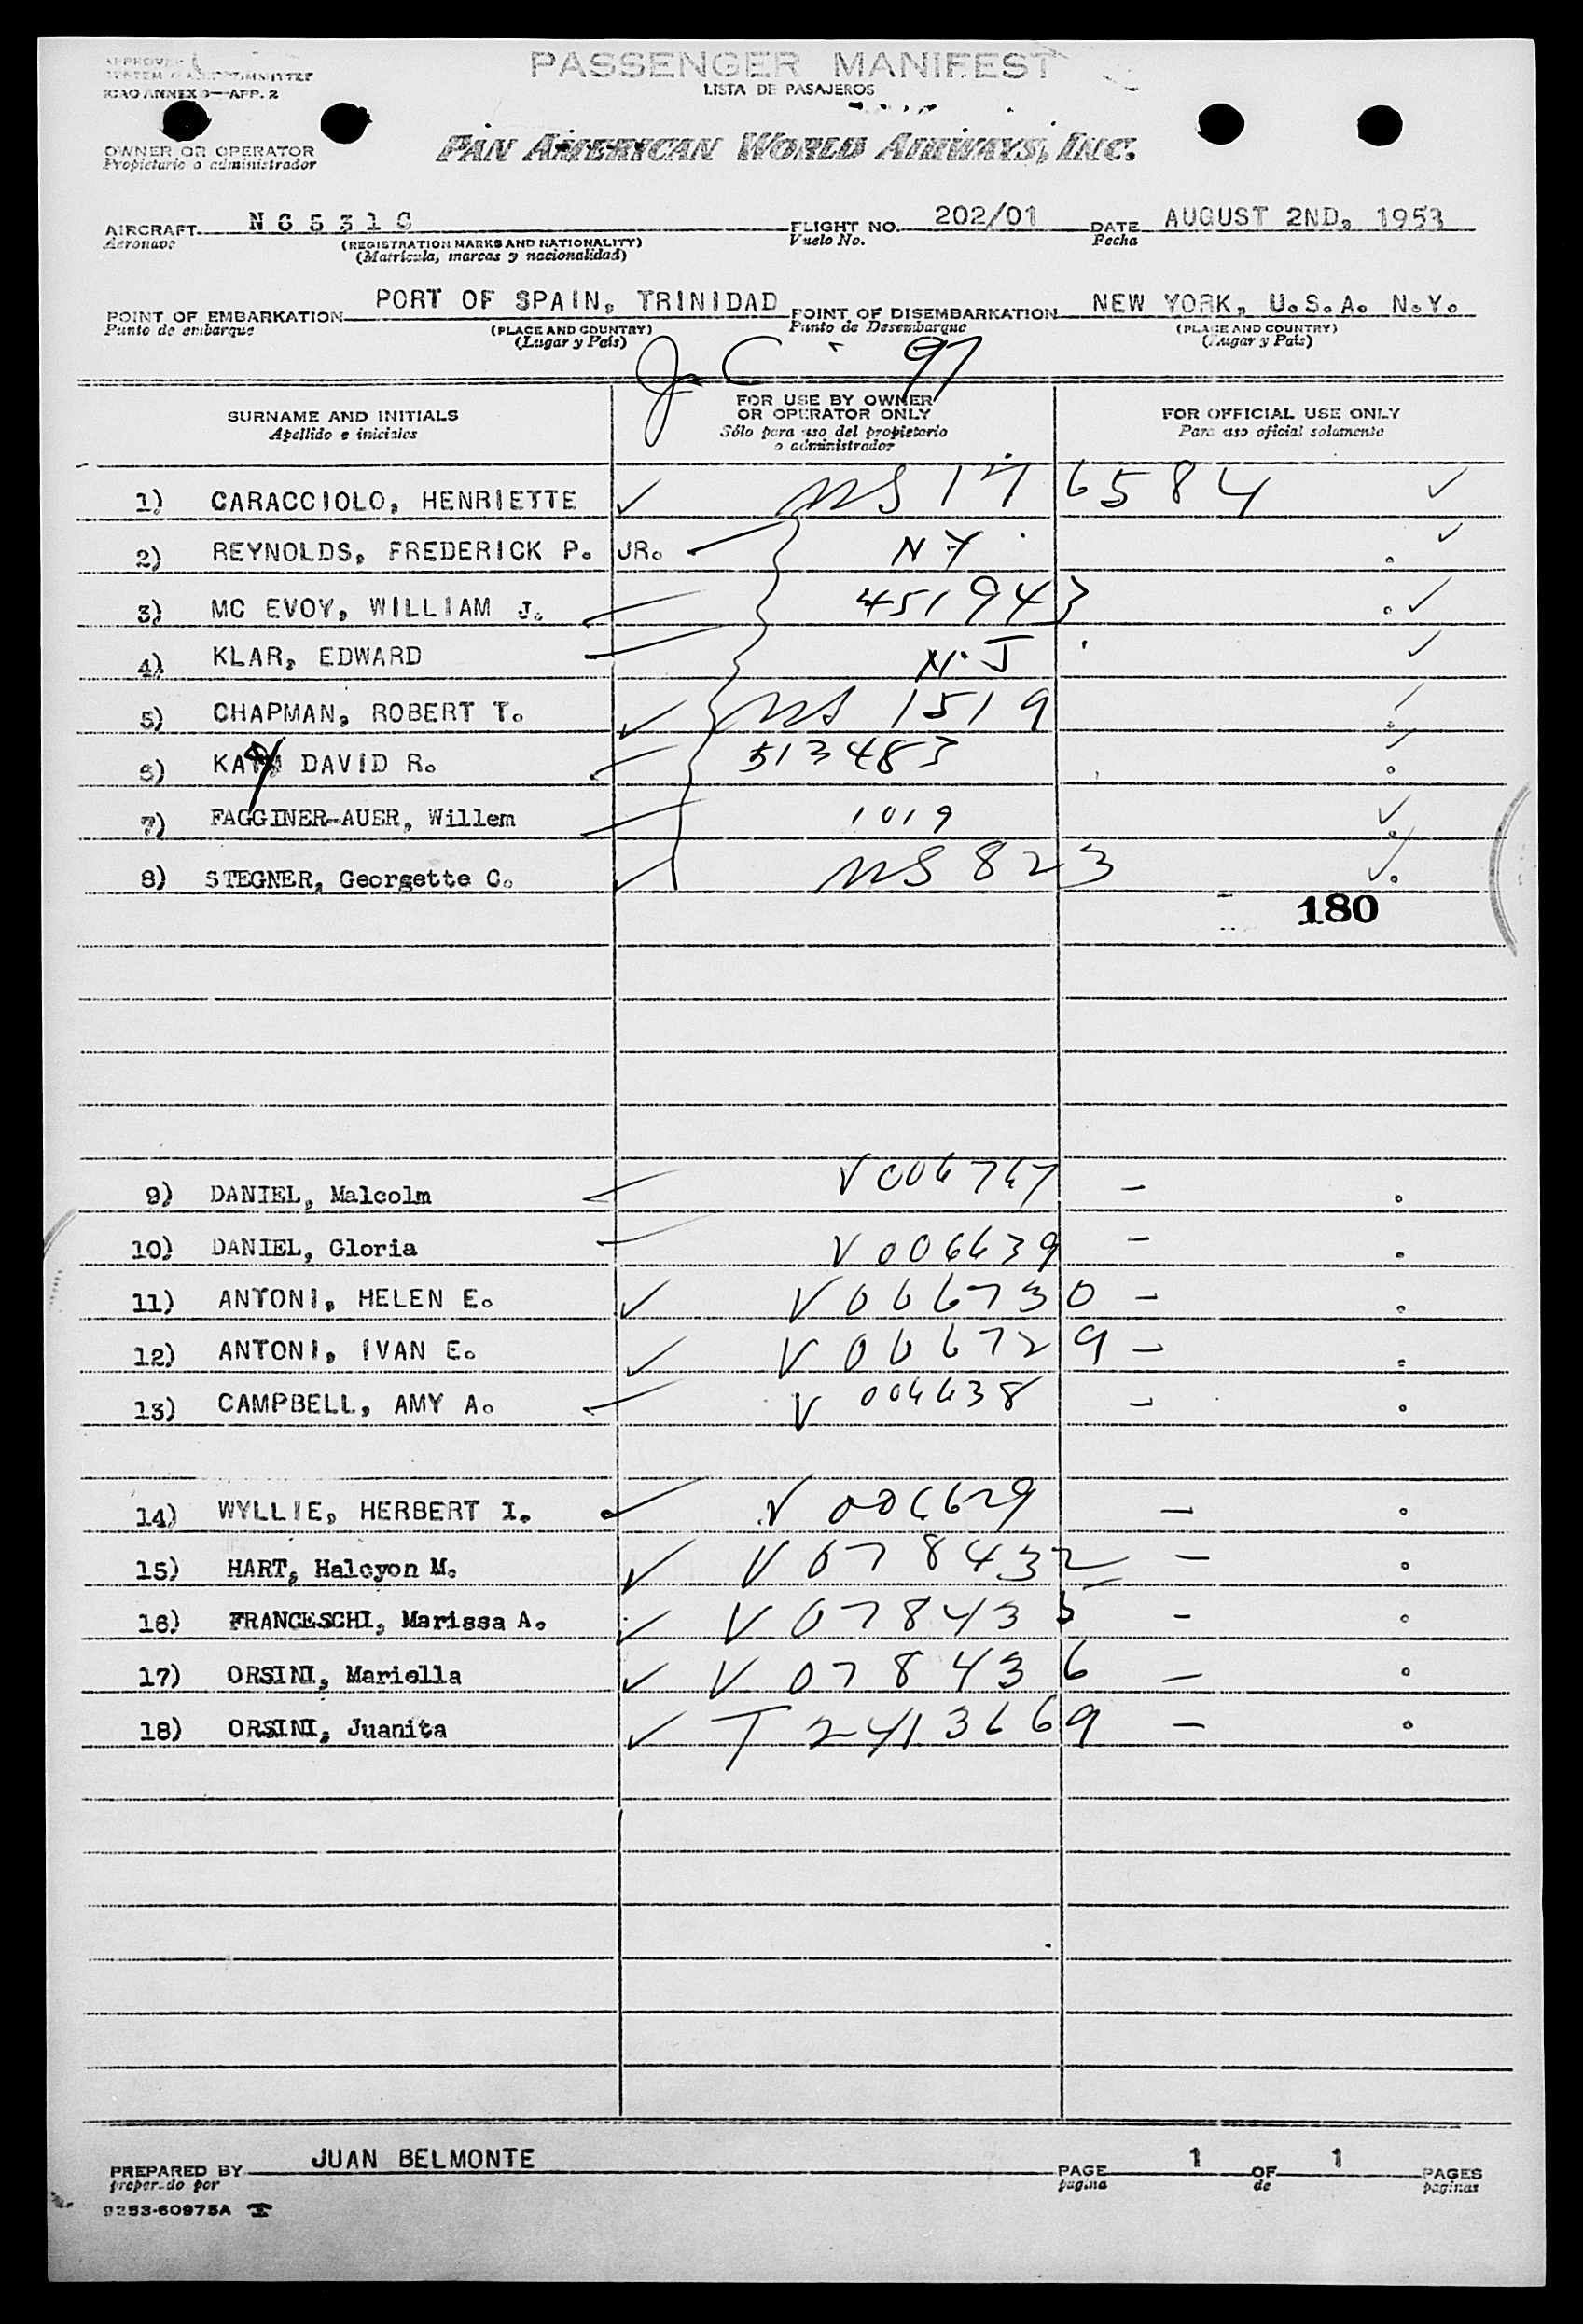 ICAO ANNEX 9—APP. 2
PASSENGER MANIFEST
LISTA DE PASAJEROS
OWNER OR OPERATOR
Propietario o administrador
PAN AMERICAN WORLD AIRWAYS, INC.
AIRCRAFT FLIGHT NO. 202/01 DATE AUGUST 2ND, 1953
Aeronave (REGISTRATION MARKS AND NATIONALITY) Vuelo No. Fecha
(Matrícula, marcas y nacionalidad)
POINT OF EMBARKATION PORT OF SPAIN, TRINIDAD POINT OF DISEMBARKATION NEW YORK, U.S.A. N.Y.
Punto de embarque (PLACE AND COUNTRY) Punto de Desembarque (PLACE AND COUNTRY)
(Lugar y País) (Lugar y País)
97
SURNAME AND INITIALS FOR USE BY OWNER OR OPERATOR ONLY FOR OFFICIAL USE ONLY
Apellido e iniciales Sólo para uso del propietario o administrador Para uso oficial solamente
1) CARACCIOLO, HENRIETTE ✓ ✓
2) REYNOLDS, FREDERICK P. JR. NY ✓
3) MC EVOY, WILLIAM J. 451943 ✓
4) KLAR, EDWARD N.J ✓
5) CHAPMAN, ROBERT T. ✓ 1519 ✓
6) DAVID R. 513483 ✓
7) FAGGINER-AUER, Willem 1019 ✓
8) STEGNER, Georgette C. ✓ NS 823 ✓
180
9) DANIEL, Malcolm V 006767 -
10) DANIEL, Gloria V 006639 -
11) ANTONI, HELEN E. ✓ V 006730 -
12) ANTONI, IVAN E. ✓ V 006729 -
13) CAMPBELL, AMY A. V 006638 -
14) WYLLIE, HERBERT I. V 006629 -
15) HART, Halcyon M. ✓ V 078432 -
16) FRANCESCHI, Marissa A. ✓ V -
17) ORSINI, Mariella ✓ V 078436 -
18) ORSINI, Juanita ✓ T 2413669 -
PREPARED BY JUAN BELMONTE PAGE 1 OF 1 PAGES
preparado por pagina de paginas
9253-60975A